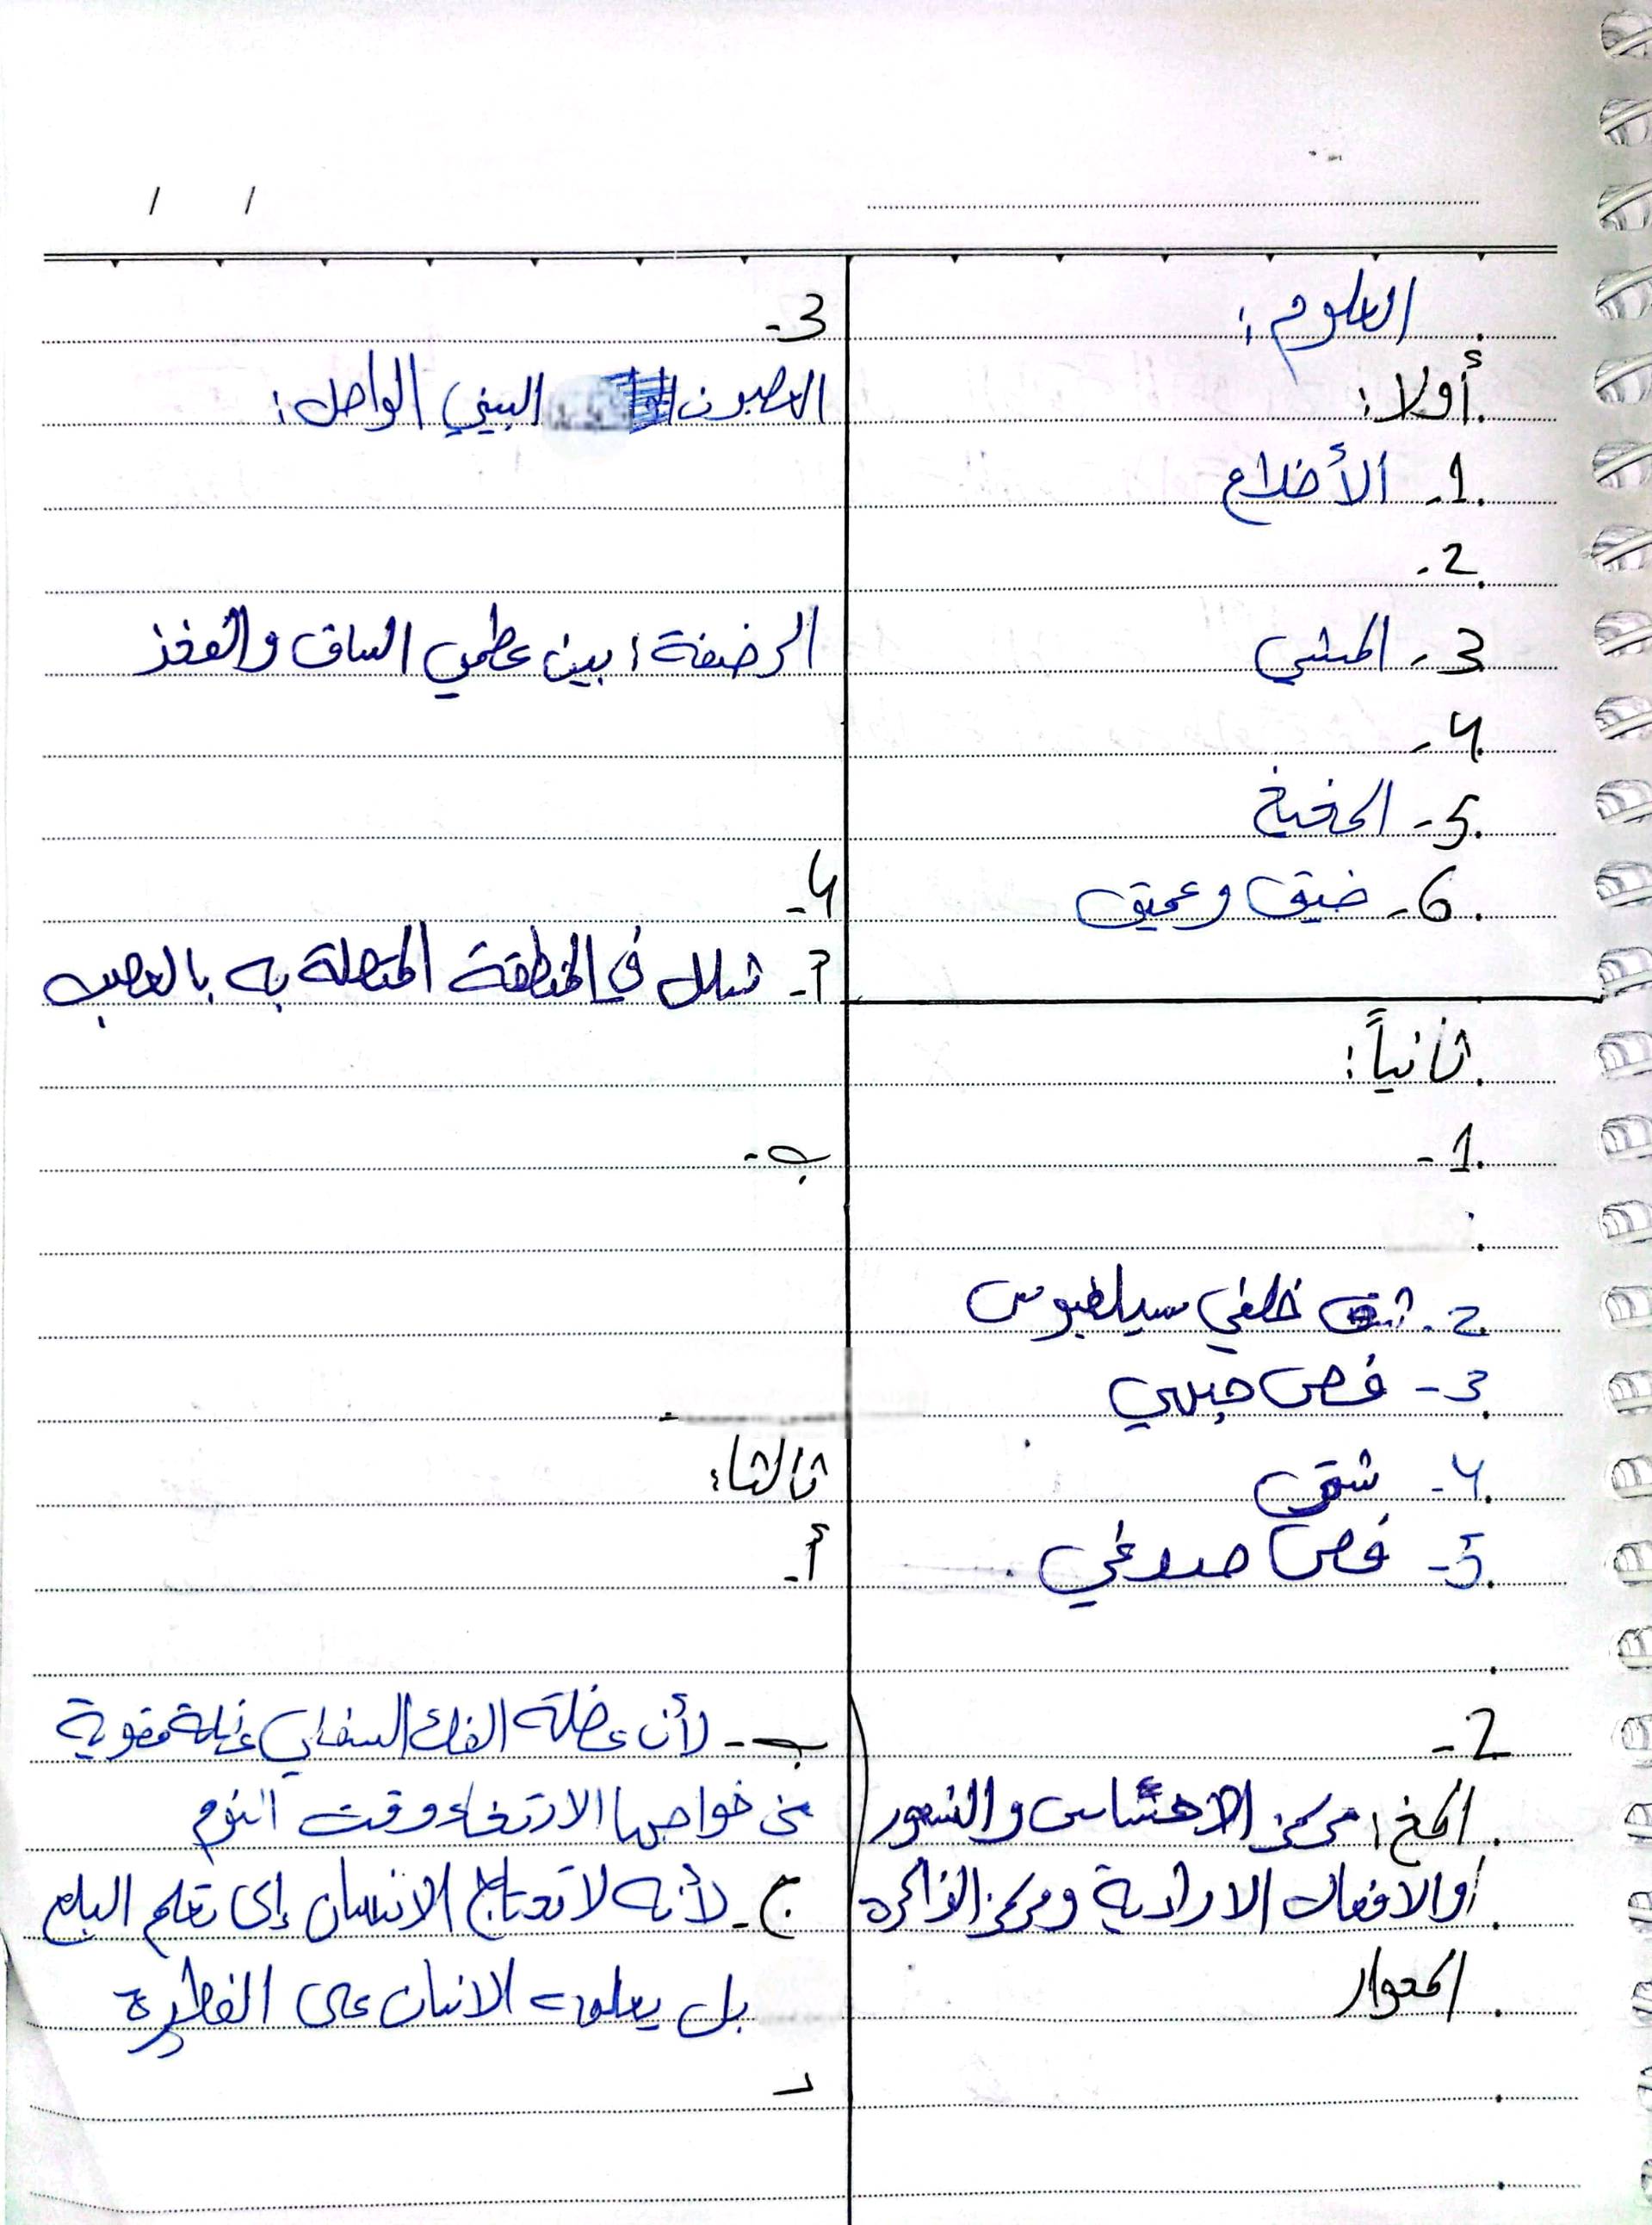 العلوم:
أولا:
1- الأضلاع
2-
3- المشي
4-
5- المخيخ
6- ضيق وعميق
ثانياً:
1-
2- شق خلفي سيلفيوس
3- فص جبهي
4- شق
5- فص صدغي
2-
المخ: مركز الاحساس والشعور
والافعال الارادية ومركز الذاكرة
المحوار
3-
العصبون البيني الواصل:
الرضفة: بين عظمي الساق والفخذ
4-
أ- شلل في المنطقة المتصلة به بالعصب
ب-
ثالثا:
أ-
ب- لأن عضلة الفك السفلي عضلة مقوية
من خواصها الارتخاء وقت النوم
ج- لأنه لا تحتاج الانسان إلى تعلم البلع
بل يعلمه الانسان على الفطرة
د